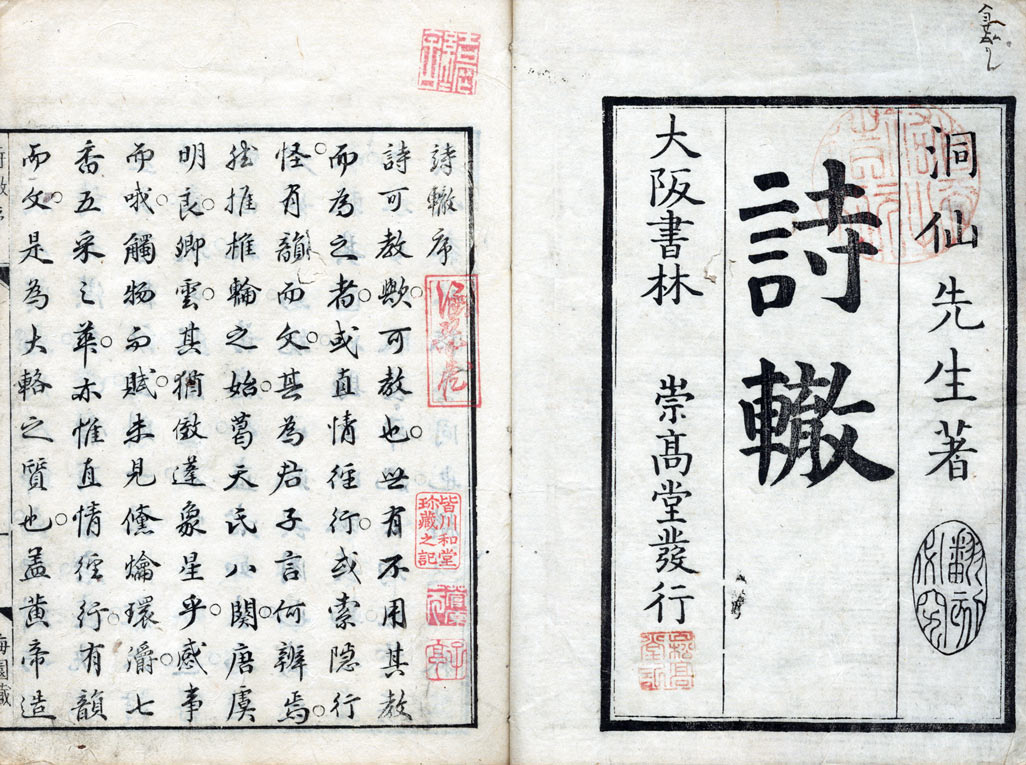 洞仙先生著
詩轍
大阪書林 崇高堂發行
詩轍序
詩可教歟可教也世有不用其教
而為之者或直情徑行或索隱行
怪有韻而文其為君子言何辨焉
推椎輪之始葛天氏八闋唐虞
明良卿雲其猶倣蓬象星乎感事
而哦觸物而賦未見儻爚環灂七
喬五采之華亦惟直情徑行有韻
而文是為大輅之質也蓋黄帝造
皆川和堂
珎藏之記